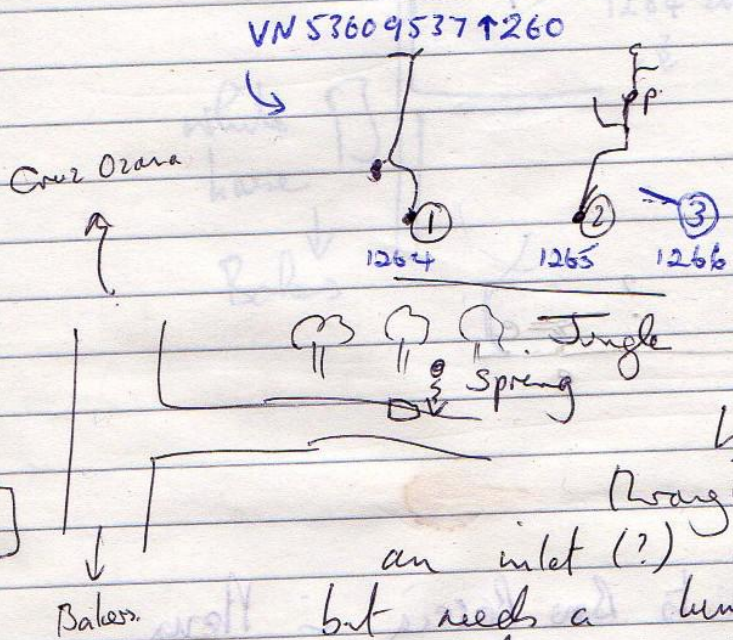 VN 5360 9537 ↑260
p.
Cruz Ozana
1 2 3
1264 1265 1266
Jungle
Spring
an inlet (?)
Bakers.
but needs a